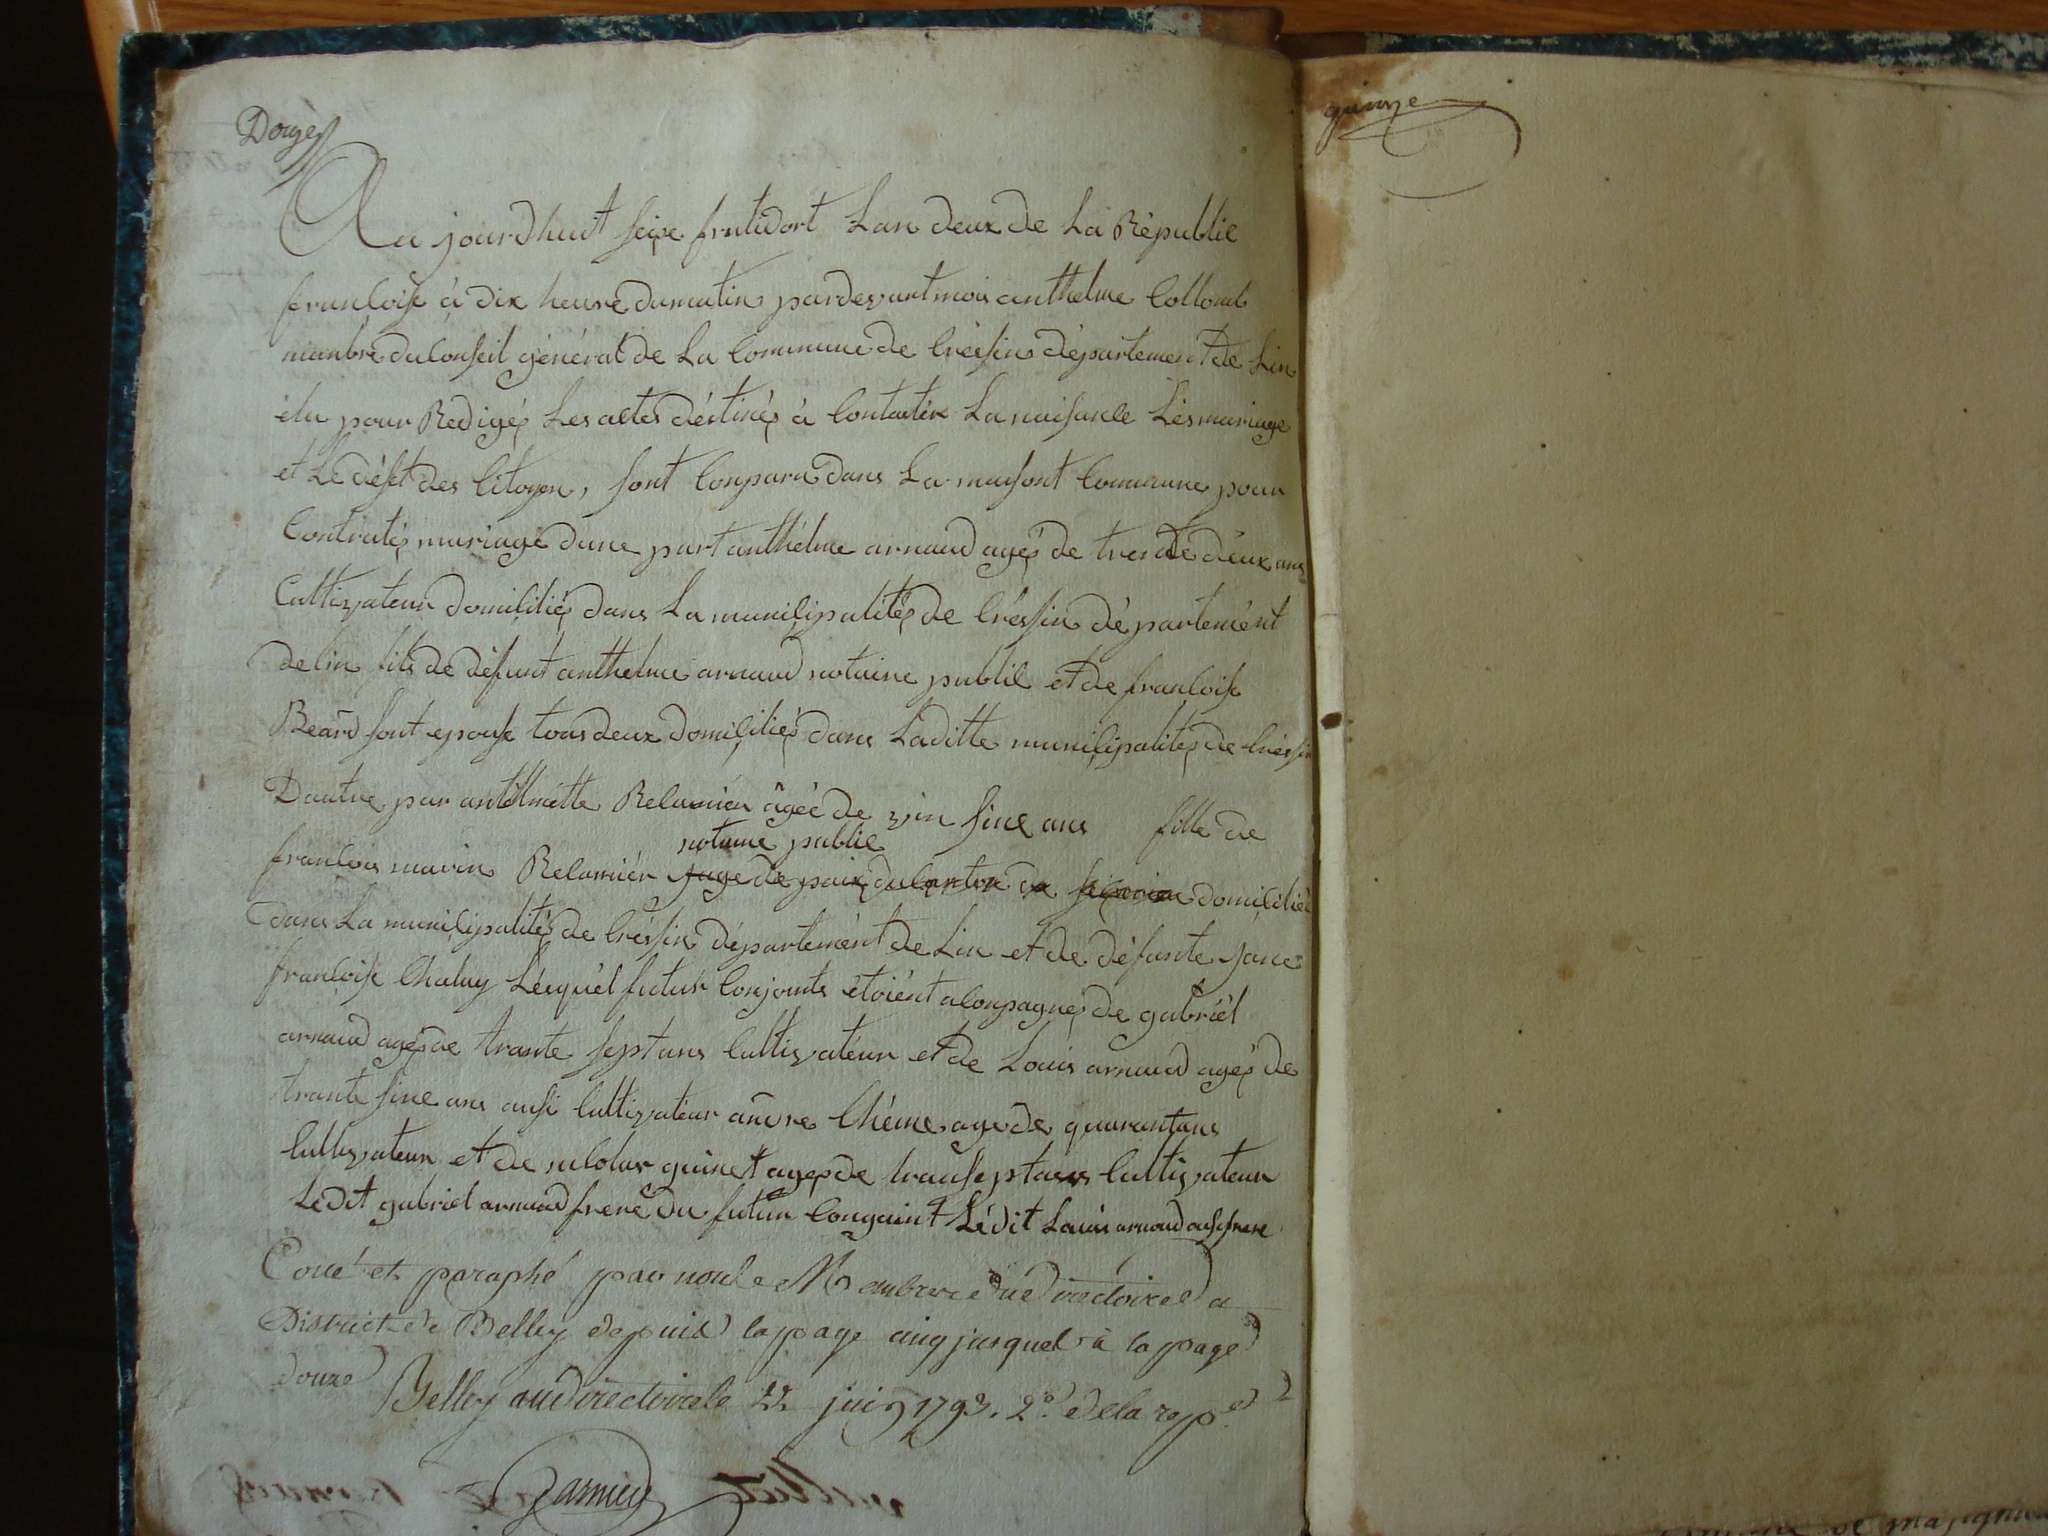 Douze
Au jourdhuit seize frutidort Lan deux de La Républic
francoise à dix heure du matin pardevant moi anthelme Collomb
manbre du Conseil général de La Commune de Cressin département de Lin
elu pour Redigés Les actes déstinés à Contater La naisance Lés mariage
et Le dését des Citoyen, sont Conparu dans La maisont Commune pour
Contratés mariage dune part anthélme arnaud agés de trente déux ans
Cultivateur domiciliés dans La municipalités de Créssin département
de lin fils de défunt anthelme arnaud notaire public et de francoise
Béard sont epouse tous deux domiciliés dans Laditte municipalités de Créssin
Dautre par antélmétte Relamiér âgée de vin sinc ans fille de
francois marin Relamiér juge de paix du canton de domiciliés
notaire public
dans La municipalités de Créssin département de Lin et de défunte jane
francoise Chaluy Lésquél futur Conjoints étoiént aConpagnés de gabriél
arnaud agés de trante sept ans Cultivatéur et de Louis arnaud agés de
trante sinc ans ausi Cultivatéur age de quarantans
Cultivateur et de nicolas guinet agés de transeptans Cultivateur
Ledit gabriel arnaud frere du futur Congoint Lédit Louis arnaud ausi frere
Coué et paraphé par nous Membre du Directoire du
District de Belley depuis la page cinq jusques à la page
douze
Belley au Directoire le 22 juin 1793. 2e. de la rep.
quinze